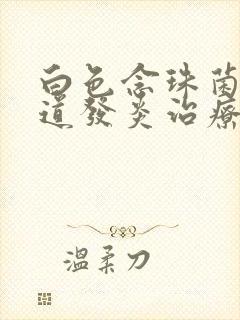 白色念珠菌
道發炎治療
溫柔刀